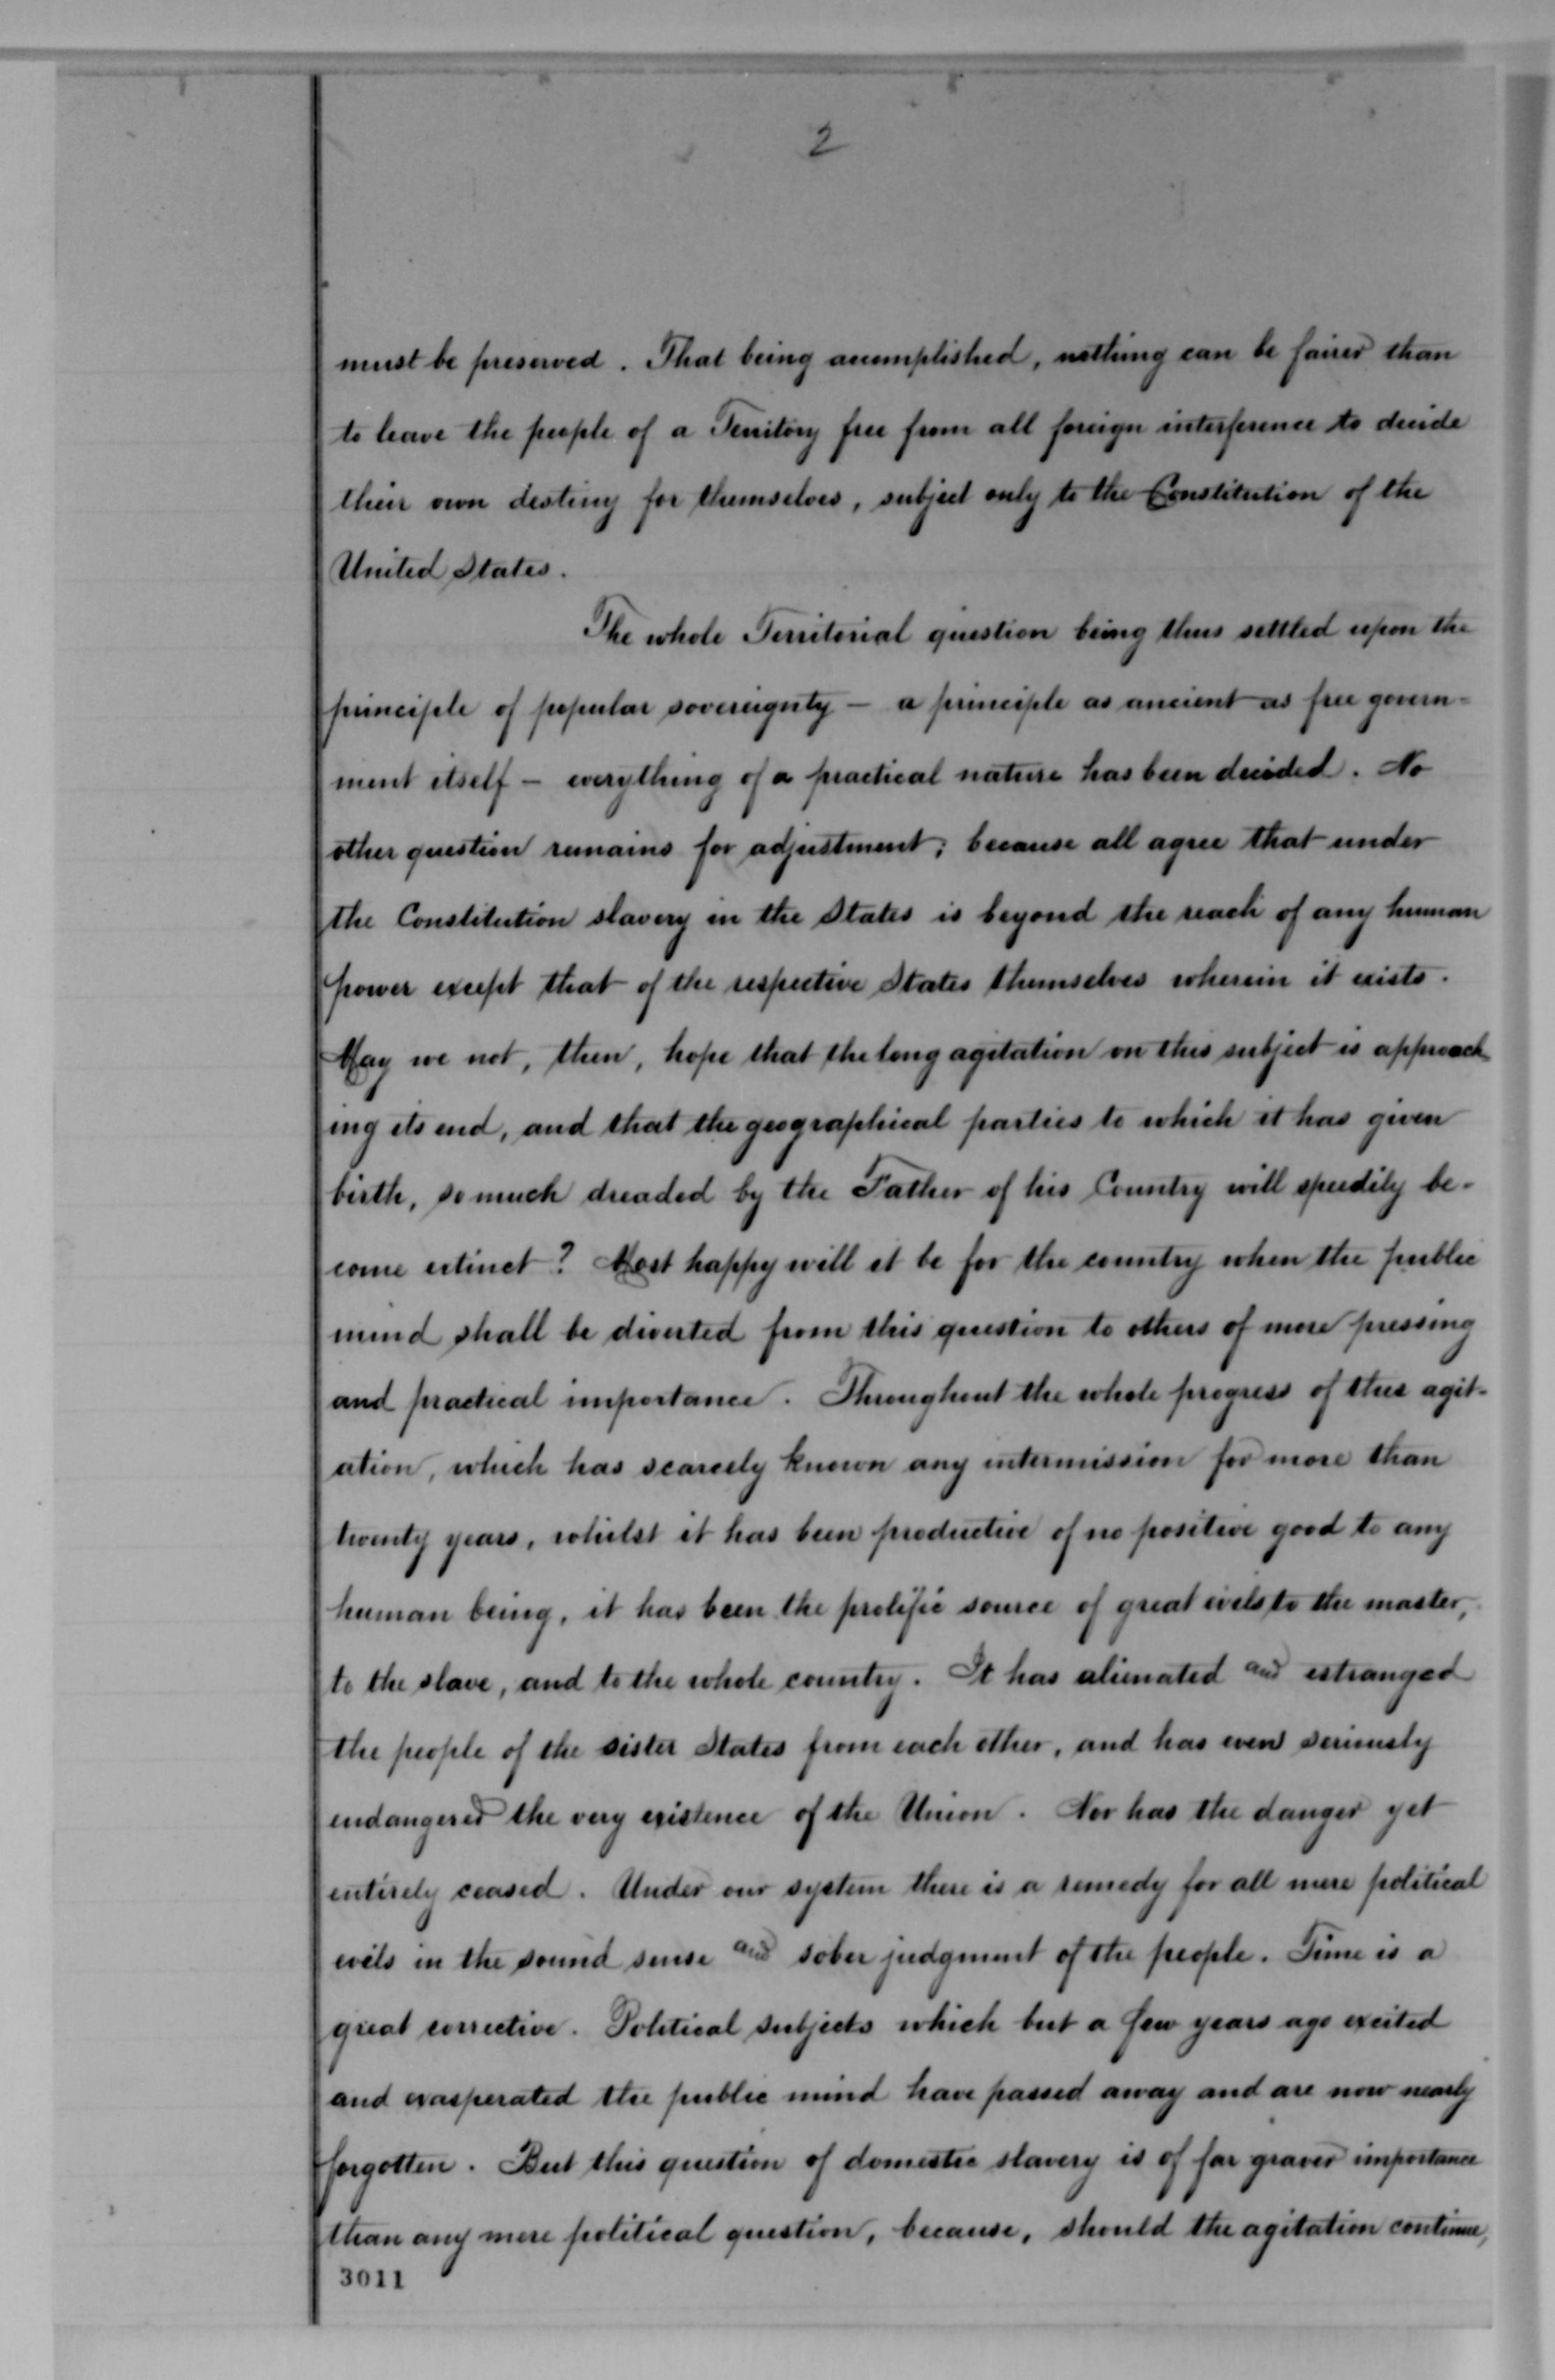 2
must be preserved. That being accomplished, nothing can be fairer than
to leave the people of a Territory free from all foreign interference to decide
their own destiny for themselves, subject only to the Constitution of the
United States.
The whole Territorial question being thus settled upon the
principle of popular sovereignty — a principle as ancient as free govern-
ment itself — everything of a practical nature has been decided. No
other question remains for adjustment; because all agree that under
the Constitution slavery in the States is beyond the reach of any human
power except that of the respective States themselves wherein it exists.
May we not, then, hope that the long agitation on this subject is approach-
ing its end, and that the geographical parties to which it has given
birth, so much dreaded by the Father of his Country will speedily be-
come extinct? Most happy will it be for the country when the public
mind shall be diverted from this question to others of more pressing
and practical importance. Throughout the whole progress of this agit-
ation, which has scarcely known any intermission for more than
twenty years, whilst it has been productive of no positive good to any
human being, it has been the prolific source of great evils to the master,
to the slave, and to the whole country. It has alienated and estranged
the people of the sister States from each other, and has even seriously
endangered the very existence of the Union. Nor has the danger yet
entirely ceased. Under our system there is a remedy for all mere political
evils in the sound sense and sober judgment of the people. Time is a
great corrective. Political subjects which but a few years ago excited
and exasperated the public mind have passed away and are now nearly
forgotten. But this question of domestic slavery is of far graver importance
than any mere political question, because, should the agitation continue,
3011